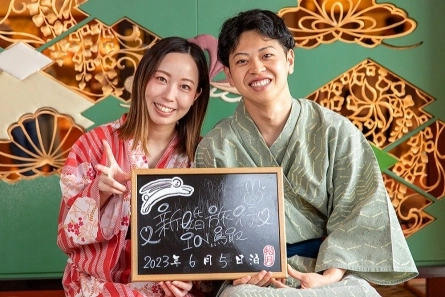 新婚旅行
IN鳥取
2023年6月5日泊